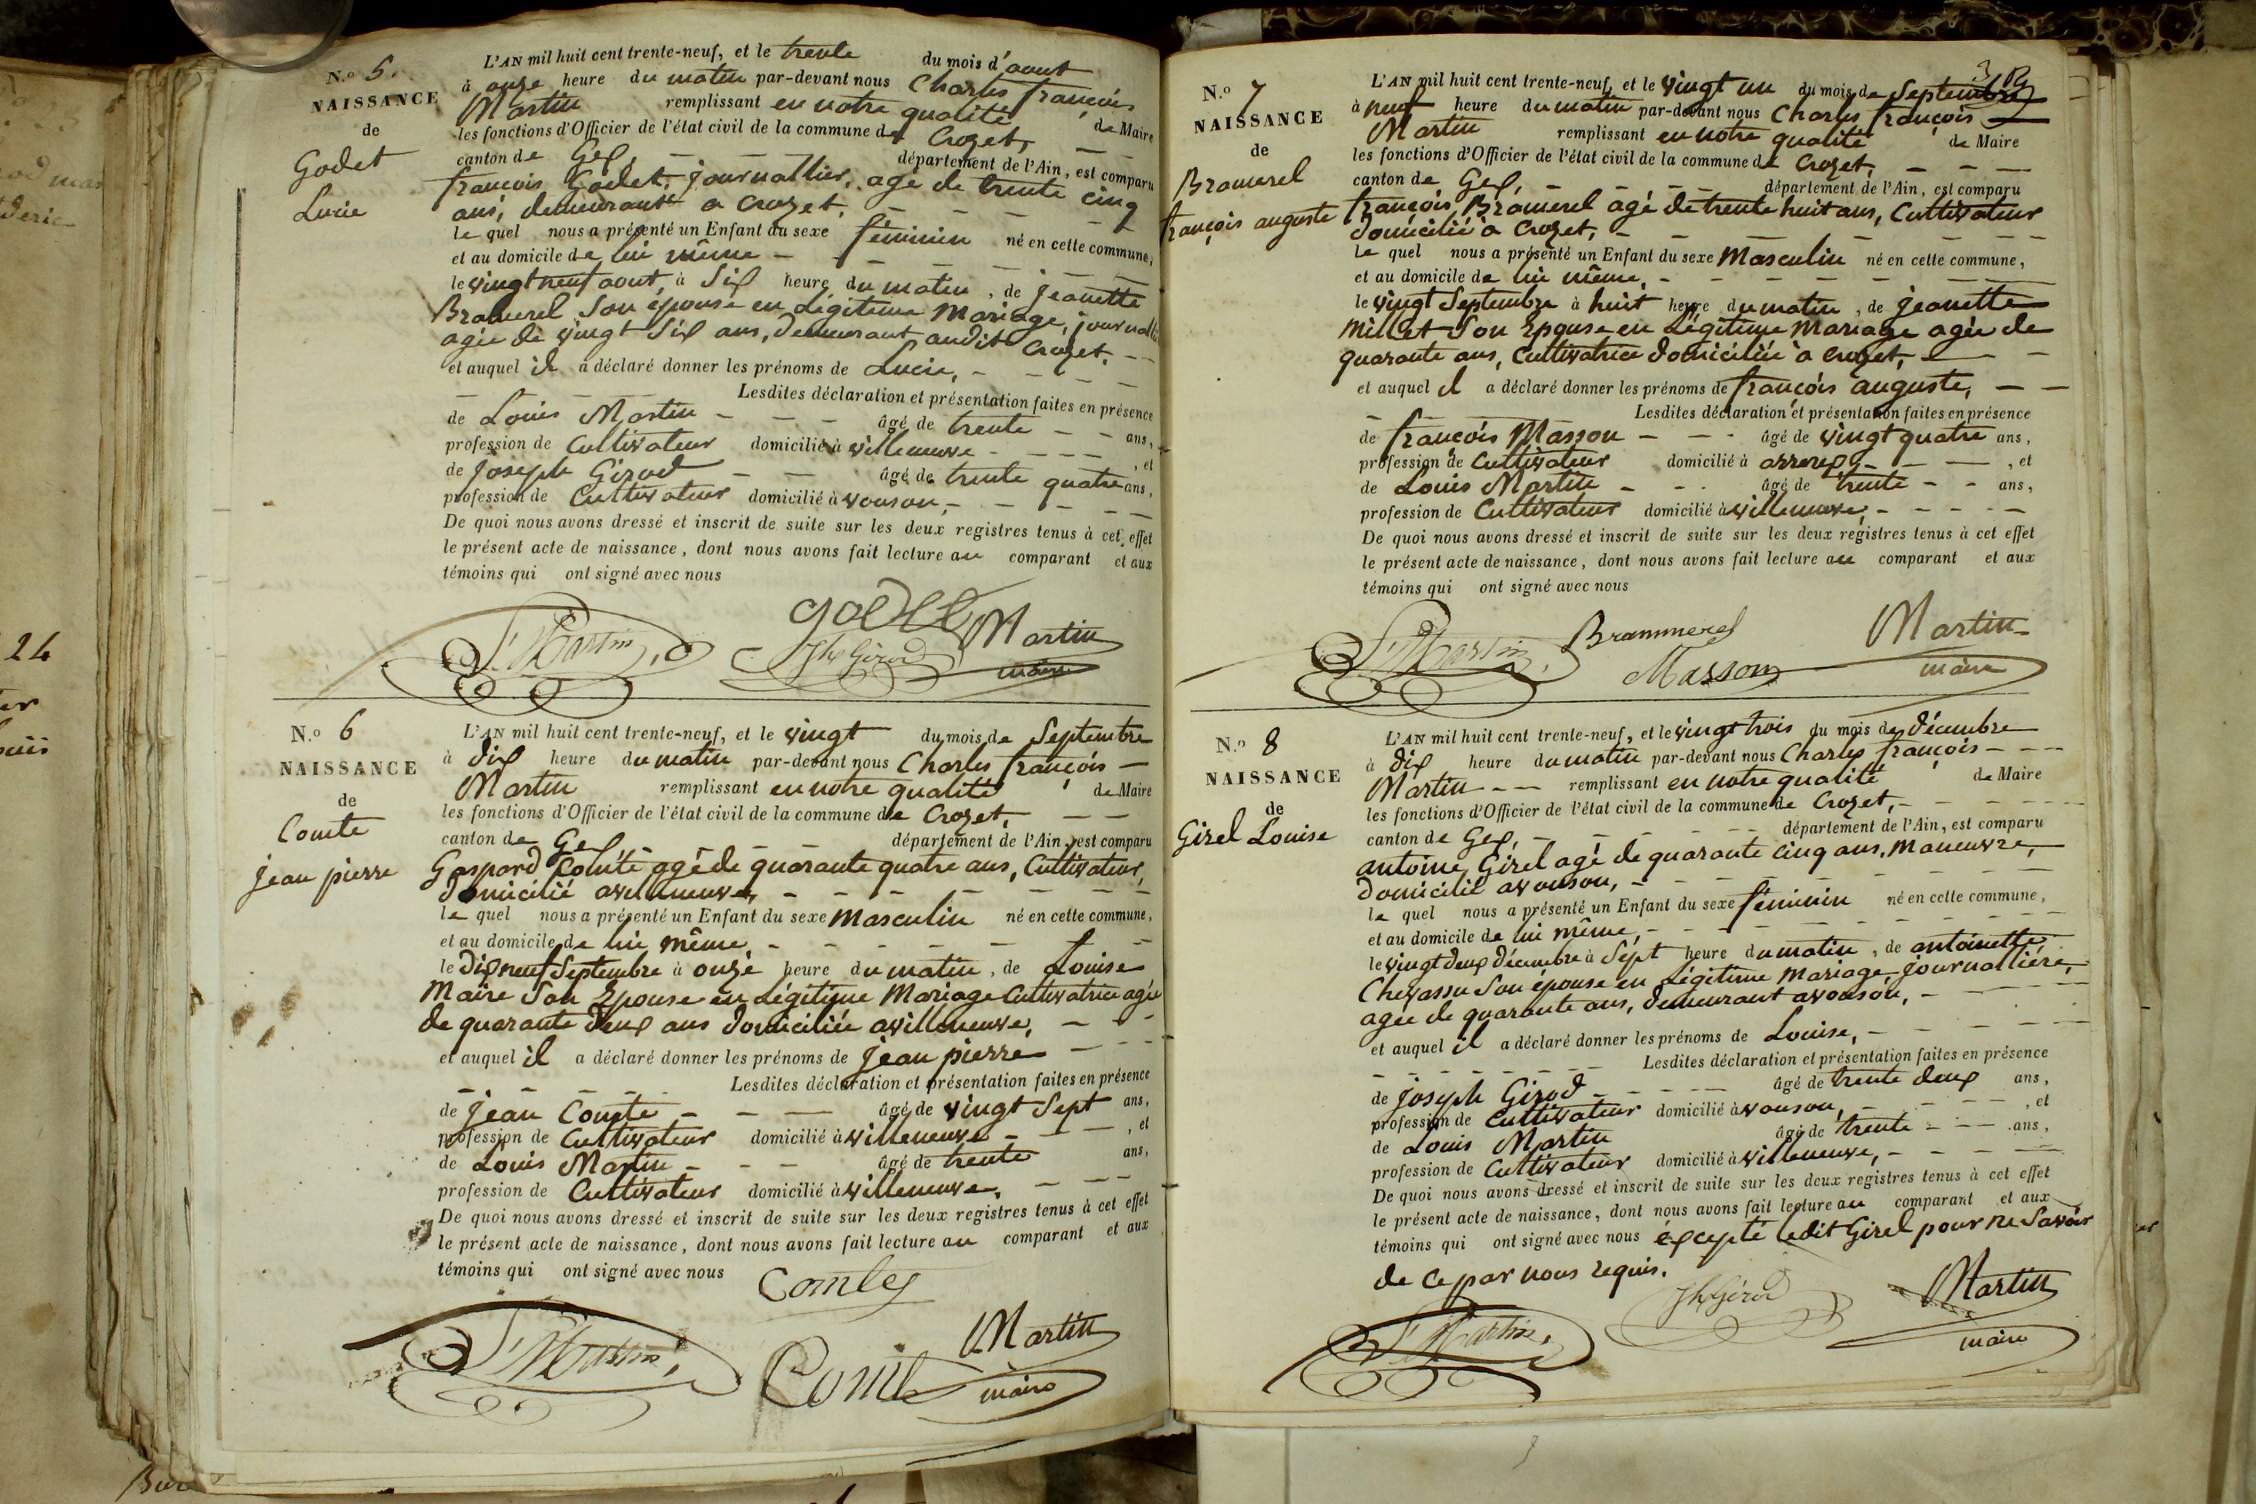 N.o 5.
NAISSANCE
de
Godet
Lucie
L'AN mil huit cent trente-neuf, et le trente du mois d'aout
à onze heure du matin par-devant nous Charles françois
Martin remplissant en notre qualité de Maire
les fonctions d'Officier de l'état civil de la commune de Crozet,
canton de Gex, département de l'Ain, est comparu
françois Godet, journallier, agé de trente cinq
ans, demeurant a crozet,
le quel nous a présenté un Enfant du sexe féminin né en cette commune,
et au domicile de lui même
le vingt neuf aout, à Six heure du matin, de jeanette
Bramerel Son épouse en Légitime Mariage, journall
agée de vingt Six ans, demeurant audit Crozet,
et auquel il a déclaré donner les prénoms de Lucie,
Lesdites déclaration et présentation faites en présence
de Louis Martin âgé de trente ans,
profession de Cultivateur domicilié à villeneuve , et
de joseph Girod âgé de trente quatre ans,
profession de Cultivateur domicilié à vouson,
De quoi nous avons dressé et inscrit de suite sur les deux registres tenus à cet effet
le présent acte de naissance, dont nous avons fait lecture au comparant et aux
témoins qui ont signé avec nous
godet
L. Martin Jh Girod Martin
maire
N.o 6
NAISSANCE
de
Comte
jean pierre
L'AN mil huit cent trente-neuf, et le vingt du mois de Septembre
à dix heure du matin par-devant nous Charles françois
Martin remplissant en notre qualité de Maire
les fonctions d'Officier de l'état civil de la commune de Crozet,
canton de Gex, département de l'Ain, est comparu
Gaspard Comte agé de quarante quatre ans, Cultivateur,
domicilié a villeneuve,
le quel nous a présenté un Enfant du sexe Masculin né en cette commune,
et au domicile de lui même,
le dix neuf Septembre à onze heure du matin, de Louise
Maire Son Epouse en Légitime Mariage Cultivatrice agée
de quarante deux ans domiciliée a villeneuve,
et auquel il a déclaré donner les prénoms de jean pierre
Lesdites déclaration et présentation faites en présence
de jean Comte âgé de vingt Sept ans,
profession de Cultivateur domicilié à villeneuve , et
de Louis Martin âgé de trente ans,
profession de Cultivateur domicilié à villeneuve,
De quoi nous avons dressé et inscrit de suite sur les deux registres tenus à cet effet
le présent acte de naissance, dont nous avons fait lecture au comparant et aux
témoins qui ont signé avec nous
L. Martin Martin
maire
N.o 7
NAISSANCE
de
Bramerel
françois auguste
L'AN mil huit cent trente-neuf, et le vingt un du mois de Septembre
à neuf heure du matin par-devant nous Charles françois
Martin remplissant en notre qualité de Maire
les fonctions d'Officier de l'état civil de la commune de Crozet,
canton de Gex, département de l'Ain, est comparu
françois Bramerel agé de trente huit ans, Cultivateur
domicilié à Crozet,
le quel nous a présenté un Enfant du sexe Masculin né en cette commune,
et au domicile de lui même,
le vingt Septembre à huit heure du matin, de jeanette
Millet Son Epouse en Légitime Mariage agée de
quarante ans, Cultivatrice domiciliée à crozet,
et auquel il a déclaré donner les prénoms de françois auguste,
Lesdites déclaration et présentation faites en présence
de françois Masson âgé de vingt quatre ans,
profession de Cultivateur domicilié à , et
de Louis Martin âgé de trente ans,
profession de Cultivateur domicilié à villeneuve,
De quoi nous avons dressé et inscrit de suite sur les deux registres tenus à cet effet
le présent acte de naissance, dont nous avons fait lecture au comparant et aux
témoins qui ont signé avec nous
L. Martin Brammerel Martin
Masson maire
N.o 8
NAISSANCE
de
Girel Louise
L'AN mil huit cent trente-neuf, et le vingt trois du mois de décembre
à dix heure du matin par-devant nous Charles françois
Martin remplissant en notre qualité de Maire
les fonctions d'Officier de l'état civil de la commune de Crozet,
canton de Gex, département de l'Ain, est comparu
antoine Girel agé de quarante cinq ans, Maneuvre,
domicilié a vouson,
le quel nous a présenté un Enfant du sexe féminin né en cette commune,
et au domicile de lui même,
le vingt deux décembre à Sept heure du matin, de antoinette
Chevassu Son épouse en Légitime Mariage, journalliére,
agée de quarante ans, demeurant a vouson,
et auquel il a déclaré donner les prénoms de Louise,
Lesdites déclaration et présentation faites en présence
de joseph Girod âgé de trente deux ans,
profession de Cultivateur domicilié à vouson, , et
de Louis Martin âgé de trente ans,
profession de Cultivateur domicilié à villeneuve,
De quoi nous avons dressé et inscrit de suite sur les deux registres tenus à cet effet
le présent acte de naissance, dont nous avons fait lecture au comparant et aux
témoins qui ont signé avec nous éxcepté ledit Girel pour ne Savoir
de ce par nous requis.
L. Martin Jh Girod Martin
maire